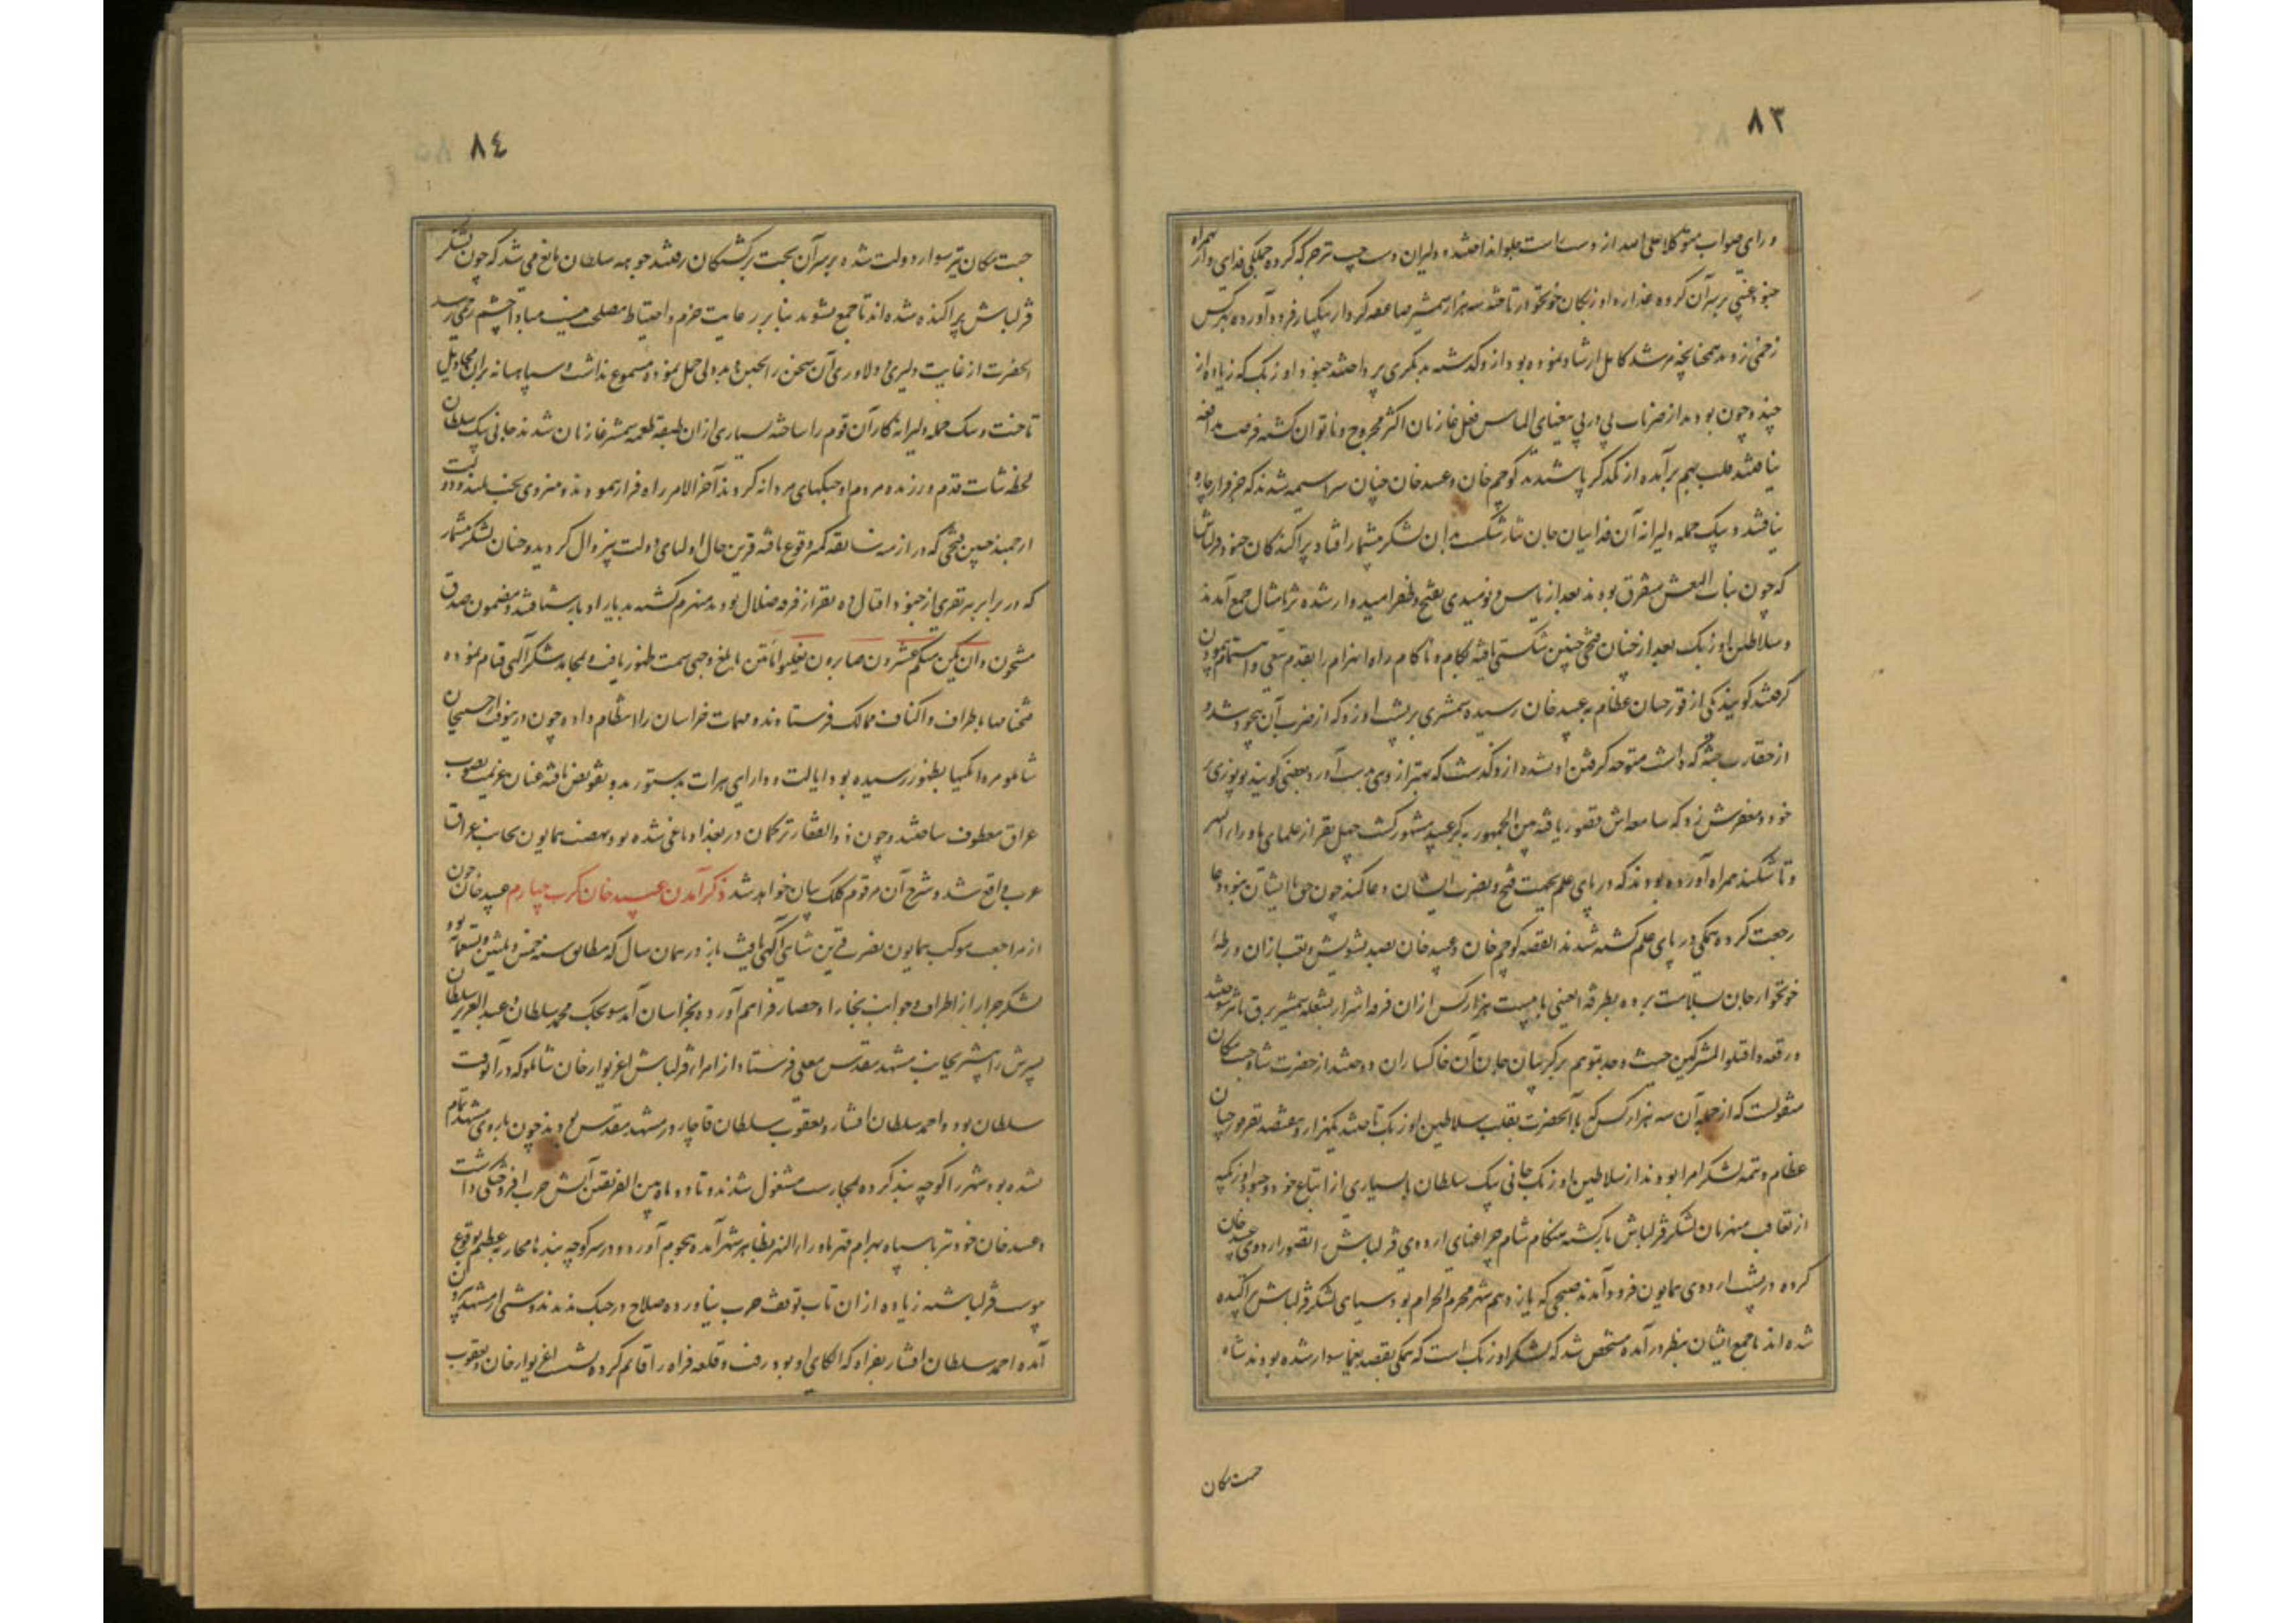 ٨٣
و رای صواب متوکلا علی الله از دست راست جلو انداختند و دلیران دست چپ نیز حرکه کرده جملکی فدای وار همراه
جنود غیبی بر سر آن کروه غداره اوزبکان خونخوار تاختند سه هزار شمشیر صاعقه کردار بیکبار فرود آورده بهر کس
زخمی زدند همچنانچه مرشد کامل ارشاد نموده بود از و کذشته بدیکری پرداختند جنود اوزبک که زیاده از
چند و چون بودند از ضربات پی در پی تیغهای الماس فعل غازیان اکثر مجروح و ناتوان کشته فرصت مدافعه
نیافتند قلب بهم برآمده از یکدکر پاشیدند کوچم خان و عبید خان چنان سراسیمه شدند که جز فرار چاره
نیافتند و بیک حمله دلیرانه آن فداییان جان نثار شکست بر آن لشکر بیشمار افتاد پراکندکان جنود قزلباش
که چون بنات النعش متفرق بودند بعد از یاس و نومیدی بفتح و ظفر امیدوار شده ثریا مثال جمع آمدند
و سلاطین اوزبک بعد از چنان فتحی چنین شکستی یافته بکام و ناکام راه انهزام را بقدم سعی و اهتمام پیمودن
کرفتند کویند یکی از قورچیان عظام به عبید خان رسیده شمشیری بر پشت او زد که از ضرب آن بیخود شد و
از حقارت جثه که داشت متوجه کرفتن او نشده از و کذشت که بهتر از وی بدست آورد بعضی کویند بوپوزی بر
خود و مغفرش زد که سامعه‌اش قصور یافته بین الجمهور به کر عبید مشهور کشت چهل نفر از علمای ماوراء النهر
و تاشکند همراه آورده بودند که در پای علم بجهت فتح و نصرت ایشان دعا کنند چون حق با ایشان نبود دعا
رجعت کرده همکی در پای علم کشته شدند القصه کوچم خان و عبید خان بصد تشویش و تعب از آن ورطه
خونخوار جان بسلامت برده بطرفة العینی با بیست هزار کس از آن فرقه اشرار بشعله شمشیر برق تاثیر سوختند
و رقعه و اقتلوا المشرکین حیث وجدتموهم بر کریبان جان آن خاکساران دوختند از حضرت شاه جنت مکان
منقولست که از جمله آن سه هزار کس که با آنحضرت بقلب سلاطین اوزبک تاختند یکهزار و هفتصد نفر قورچیان
عظام و تتمه لشکر امرا بودند از سلاطین اوزبک جانی بیک سلطان با بسیاری از اتباع خود و جنود اوزبکیه
از تعاقب منهزمان لشکر قزلباش بازکشته هنکام شام چراغهای اردوی قزلباش را تصور اردوی عبید خان
کرده در پشت اردوی همایون فرود آمدند صبحی که یازدهم شهر محرم الحرام بود سیاهی لشکر قزلباش پراکنده
شده‌اند تا جمع ایشان بنظر درآمده مشخص شد که لشکر اوزبک است که همکی بقصد یغما سوار شده بودند شاه
جنت مکان
٨٤
جنت مکان نیز سوار دولت شده بر سر آن بخت برکشتکان رفتند جوهه سلطان مانع می شد که چون لشکر
قزلباش پراکنده شده‌اند تا جمع شوند بنابر رعایت حزم و احتیاط مصلحت نیست مبادا چشم زخمی رسد
آنحضرت از غایت دلیری و دلاوری آن سخن را بجبن و بددلی حمل نموده مسموع نداشت و سپاهیانه بر آن مخاذیل
تاخت و بیک حمله دلیرانه کار آن قوم را ساخته بسیاری از آن طبقه طعمه شمشیر غازیان شدند جانی بیک سلطان
لحظه ثبات قدم ورزنده مردم او جنکهای مردانه کردند آخر الامر راه فرار نمودند و منزوی بخت بلند و دولت
ارجمند چنین فتحی که در ازمنه سابقه کمتر وقوع یافته قرین حال اولیای دولت بیزوال کردید و چنان لشکر بیشمار
که در برابر هر نفری از جنود اقبال ده نفر از فرقه ضلال بودند منهزم کشته بدیار ادبار شتافتند و مضمون صدق
مشحون و ان یکن منکم عشرون صابرون یغلبوا مأتین بابلغ وجهی سمت ظهور یافت و بمحامد شکر آلهی قیام نموده
فتحنامها باطراف و اکناف ممالک فرستادند و مهمات خراسان را انتظام داده چون درینوقت از حسین خان
شاملو مردانکیها بظهور رسیده بود ایالت و دارایی هرات بدستور بدو تفویض یافته عنان عزیمت بصوب
عراق معطوف ساختند و چون ذوالفقار ترکمان در بغداد یاغی شده بود نهضت همایون بجانب عراق
عرب واقع شد و شرح آن مرقوم کلک بیان خواهد شد ذکر آمدن عبید خان کرت چهارم عبید خان چون
از مراجعت موکب همایون نصرت قرین شاهی آکهی یافت باز در همان سال که مطابق سنه خمس و ثلثین و تسعمائه بود
لشکر جرار از اطراف و جوانب بخارا و حصار فراهم آورده بخراسان آمد سونجک محمد سلطان و عبد العزیز سلطان
پسرش را پیشتر بجانب مشهد مقدس معلی فرستاد از امراء قزلباش اغزیوار خان شاملو که در آنوقت
سلطان بود و احمد سلطان افشار و یعقوب سلطان قاجار در مشهد مقدس بودند چون باروی مشهد تمام
نشده بود شهر را کوچه بند کرده بمحاربت مشغول شدند و تا دو ماه بین الفریقین آتش حرب افروختکی داشت
و عبید خان خود نیز با سپاه بهرام قهر ماوراء النهر بظاهر شهر آمده هجوم آورد و در سر کوچه بندها محاربه عظیم بوقوع
پیوست قزلباشیه زیاده از آن تاب توقف حرب نیاورده صلاح در جنک ندیدند و شبی از مشهد بیرون
آمده احمد سلطان افشار بفراه که الکای او بود رفت و قلعه فراه را قائم کرده نشست اغزیوار خان و یعقوب